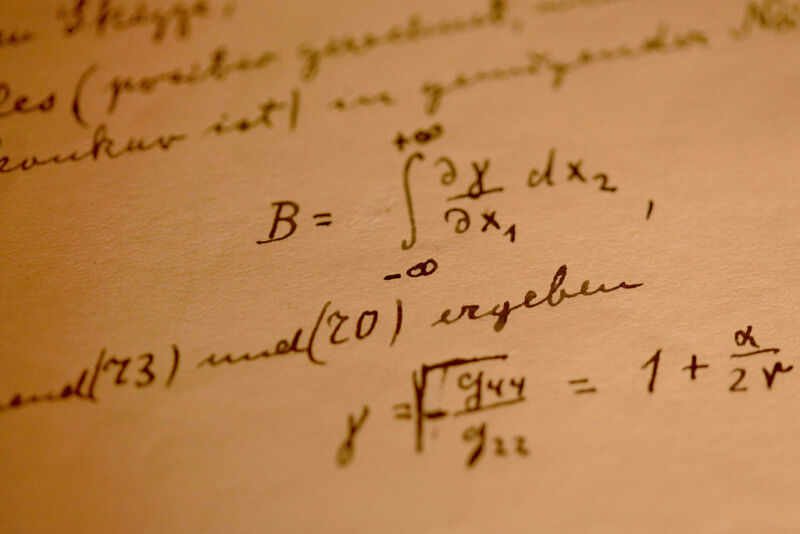 Skizze,
(positiv gerechnet,
konkav ist) in genügender
B = ∫_{-∞}^{+∞} ∂γ/∂x₁ dx₂ ,
(73) und (70) ergeben
γ = √(- g₄₄/g₂₂) = 1 + α/2r